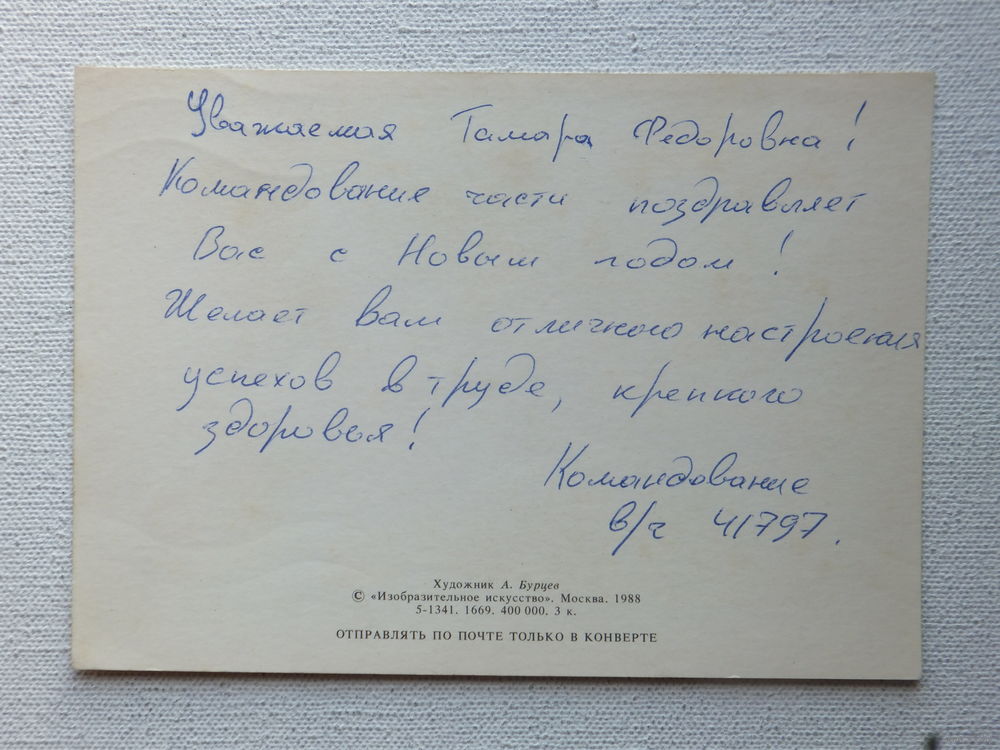 Уважаемая Тамара Федоровна!
Командование части поздравляет
Вас с Новым годом!
Желает вам отличного настроения
успехов в труде, крепкого
здоровья!
Командование
в/ч 41797.
Художник А. Бурцев
© «Изобразительное искусство». Москва. 1988
5-1341. 1669. 400 000. 3 к.
ОТПРАВЛЯТЬ ПО ПОЧТЕ ТОЛЬКО В КОНВЕРТЕ